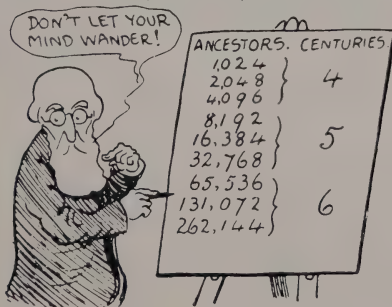 DON'T LET YOUR
MIND WANDER!
ANCESTORS. CENTURIES.
1,024
2,048
4,096
4
8,192
16,384
32,768
5
65,536
131,072
262,144
6